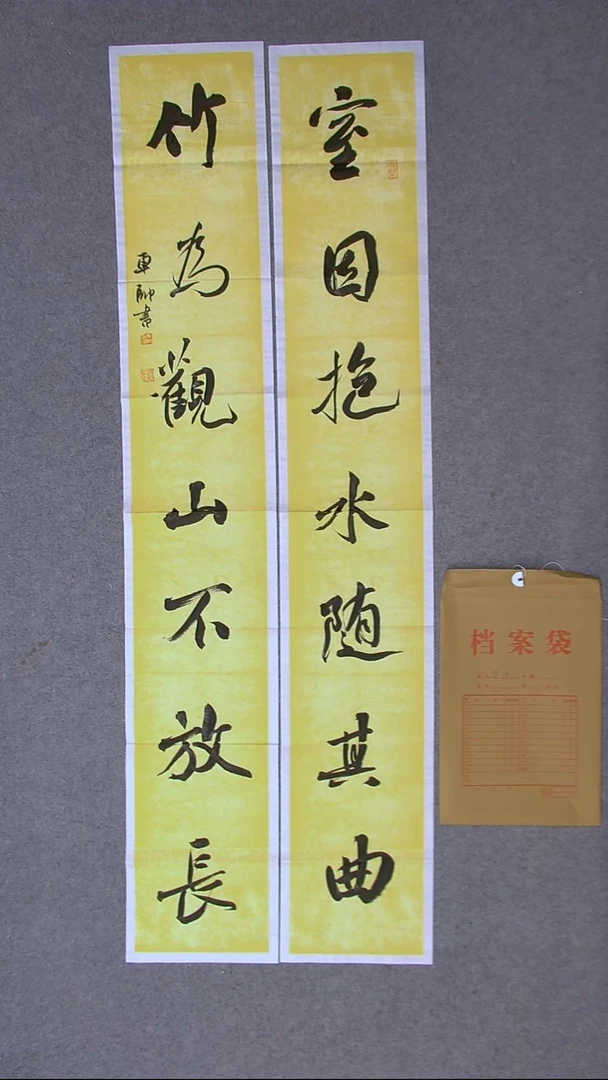 室因抱水随其曲
竹為觀山不放長
車帥書
档案袋